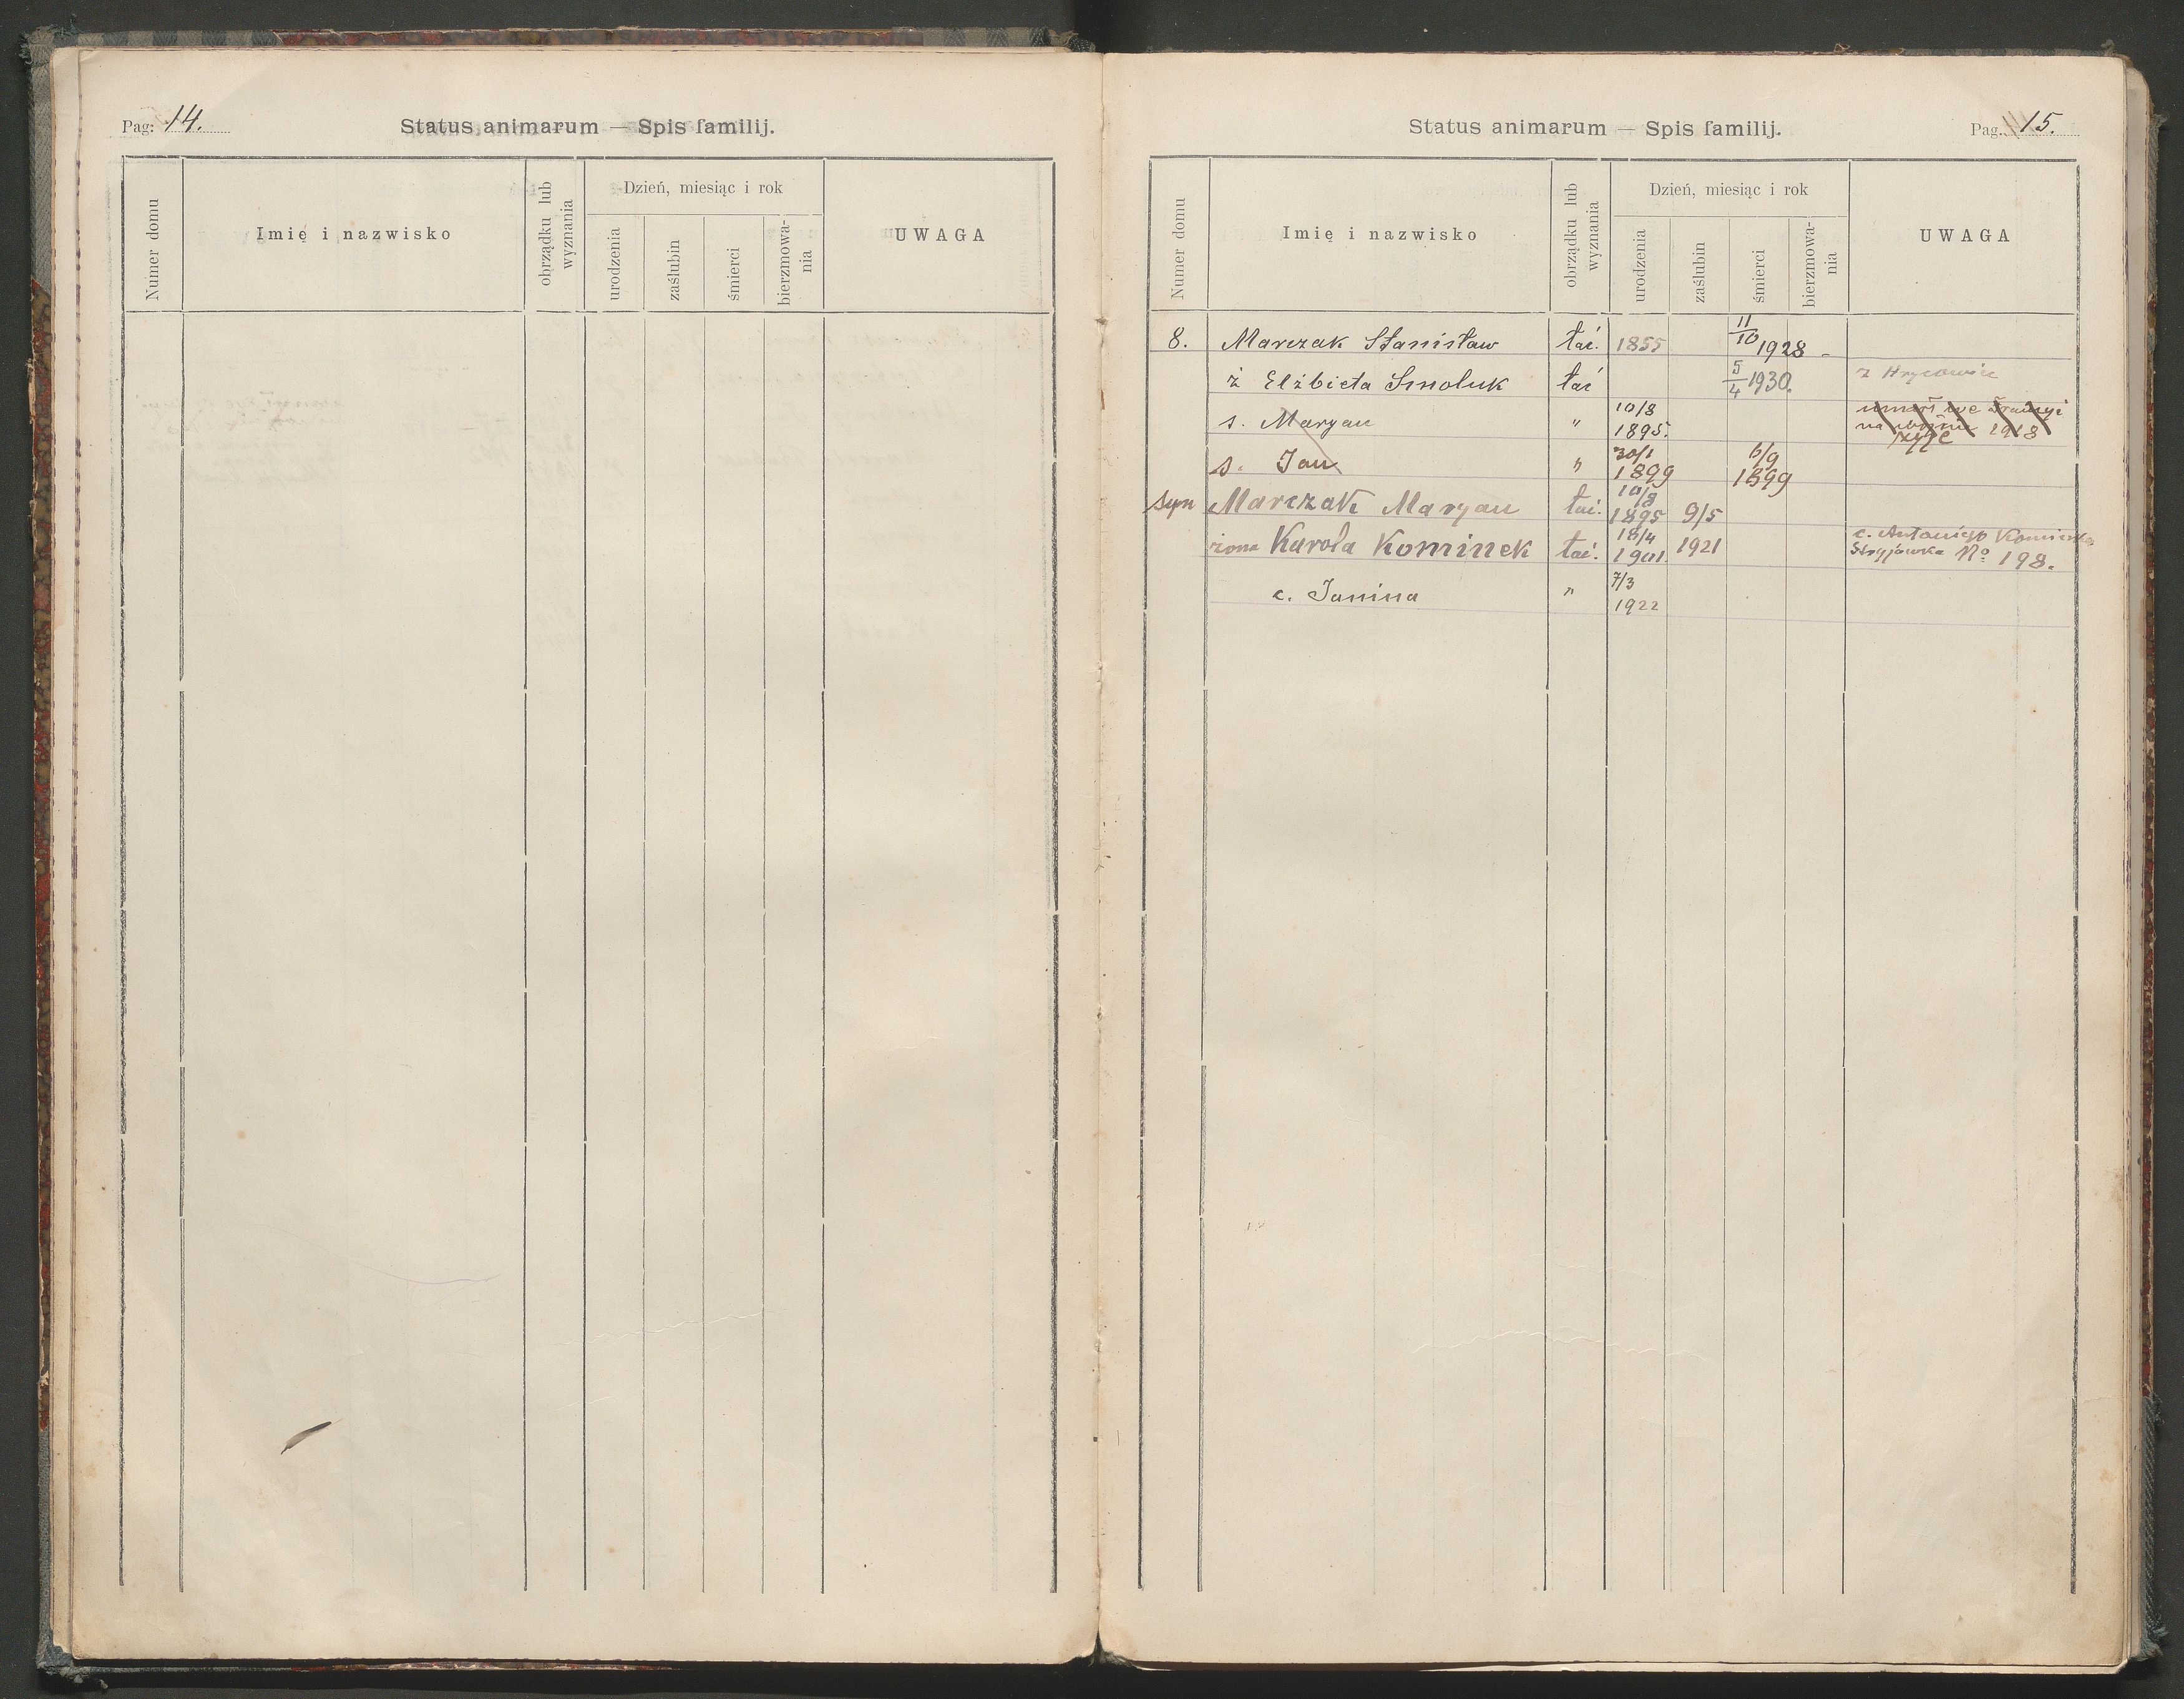 Pag: 14.
Status animarum — Spis familij.
Numer domu
Imię i nazwisko
obrządku lub wyznania
Dzień, miesiąc i rok
urodzenia
zaślubin
śmierci
bierzmowa-
nia
UWAGA
Status animarum — Spis familij.
Pag. 15.
Numer domu
Imię i nazwisko
obrządku lub wyznania
Dzień, miesiąc i rok
urodzenia
zaślubin
śmierci
bierzmowa-
nia
UWAGA
8. Marczak Stanisław łać. 1855 11/10 1928 -
ż Elżbieta Smoluk łać 5/4 1930. z
s. Maryan " 10/8 1895. umarł we Francyi
na wojnie 1918
żyje
s. Jan " 30/1 1899 6/9 1899
syn Marczak Maryan łać. 10/8 1895 9/5
żona Karola Kominek łać. 18/4 1901. 1921 c. Antoniego Kominka
Stryjówka No 198.
c. Janina " 7/3
1922